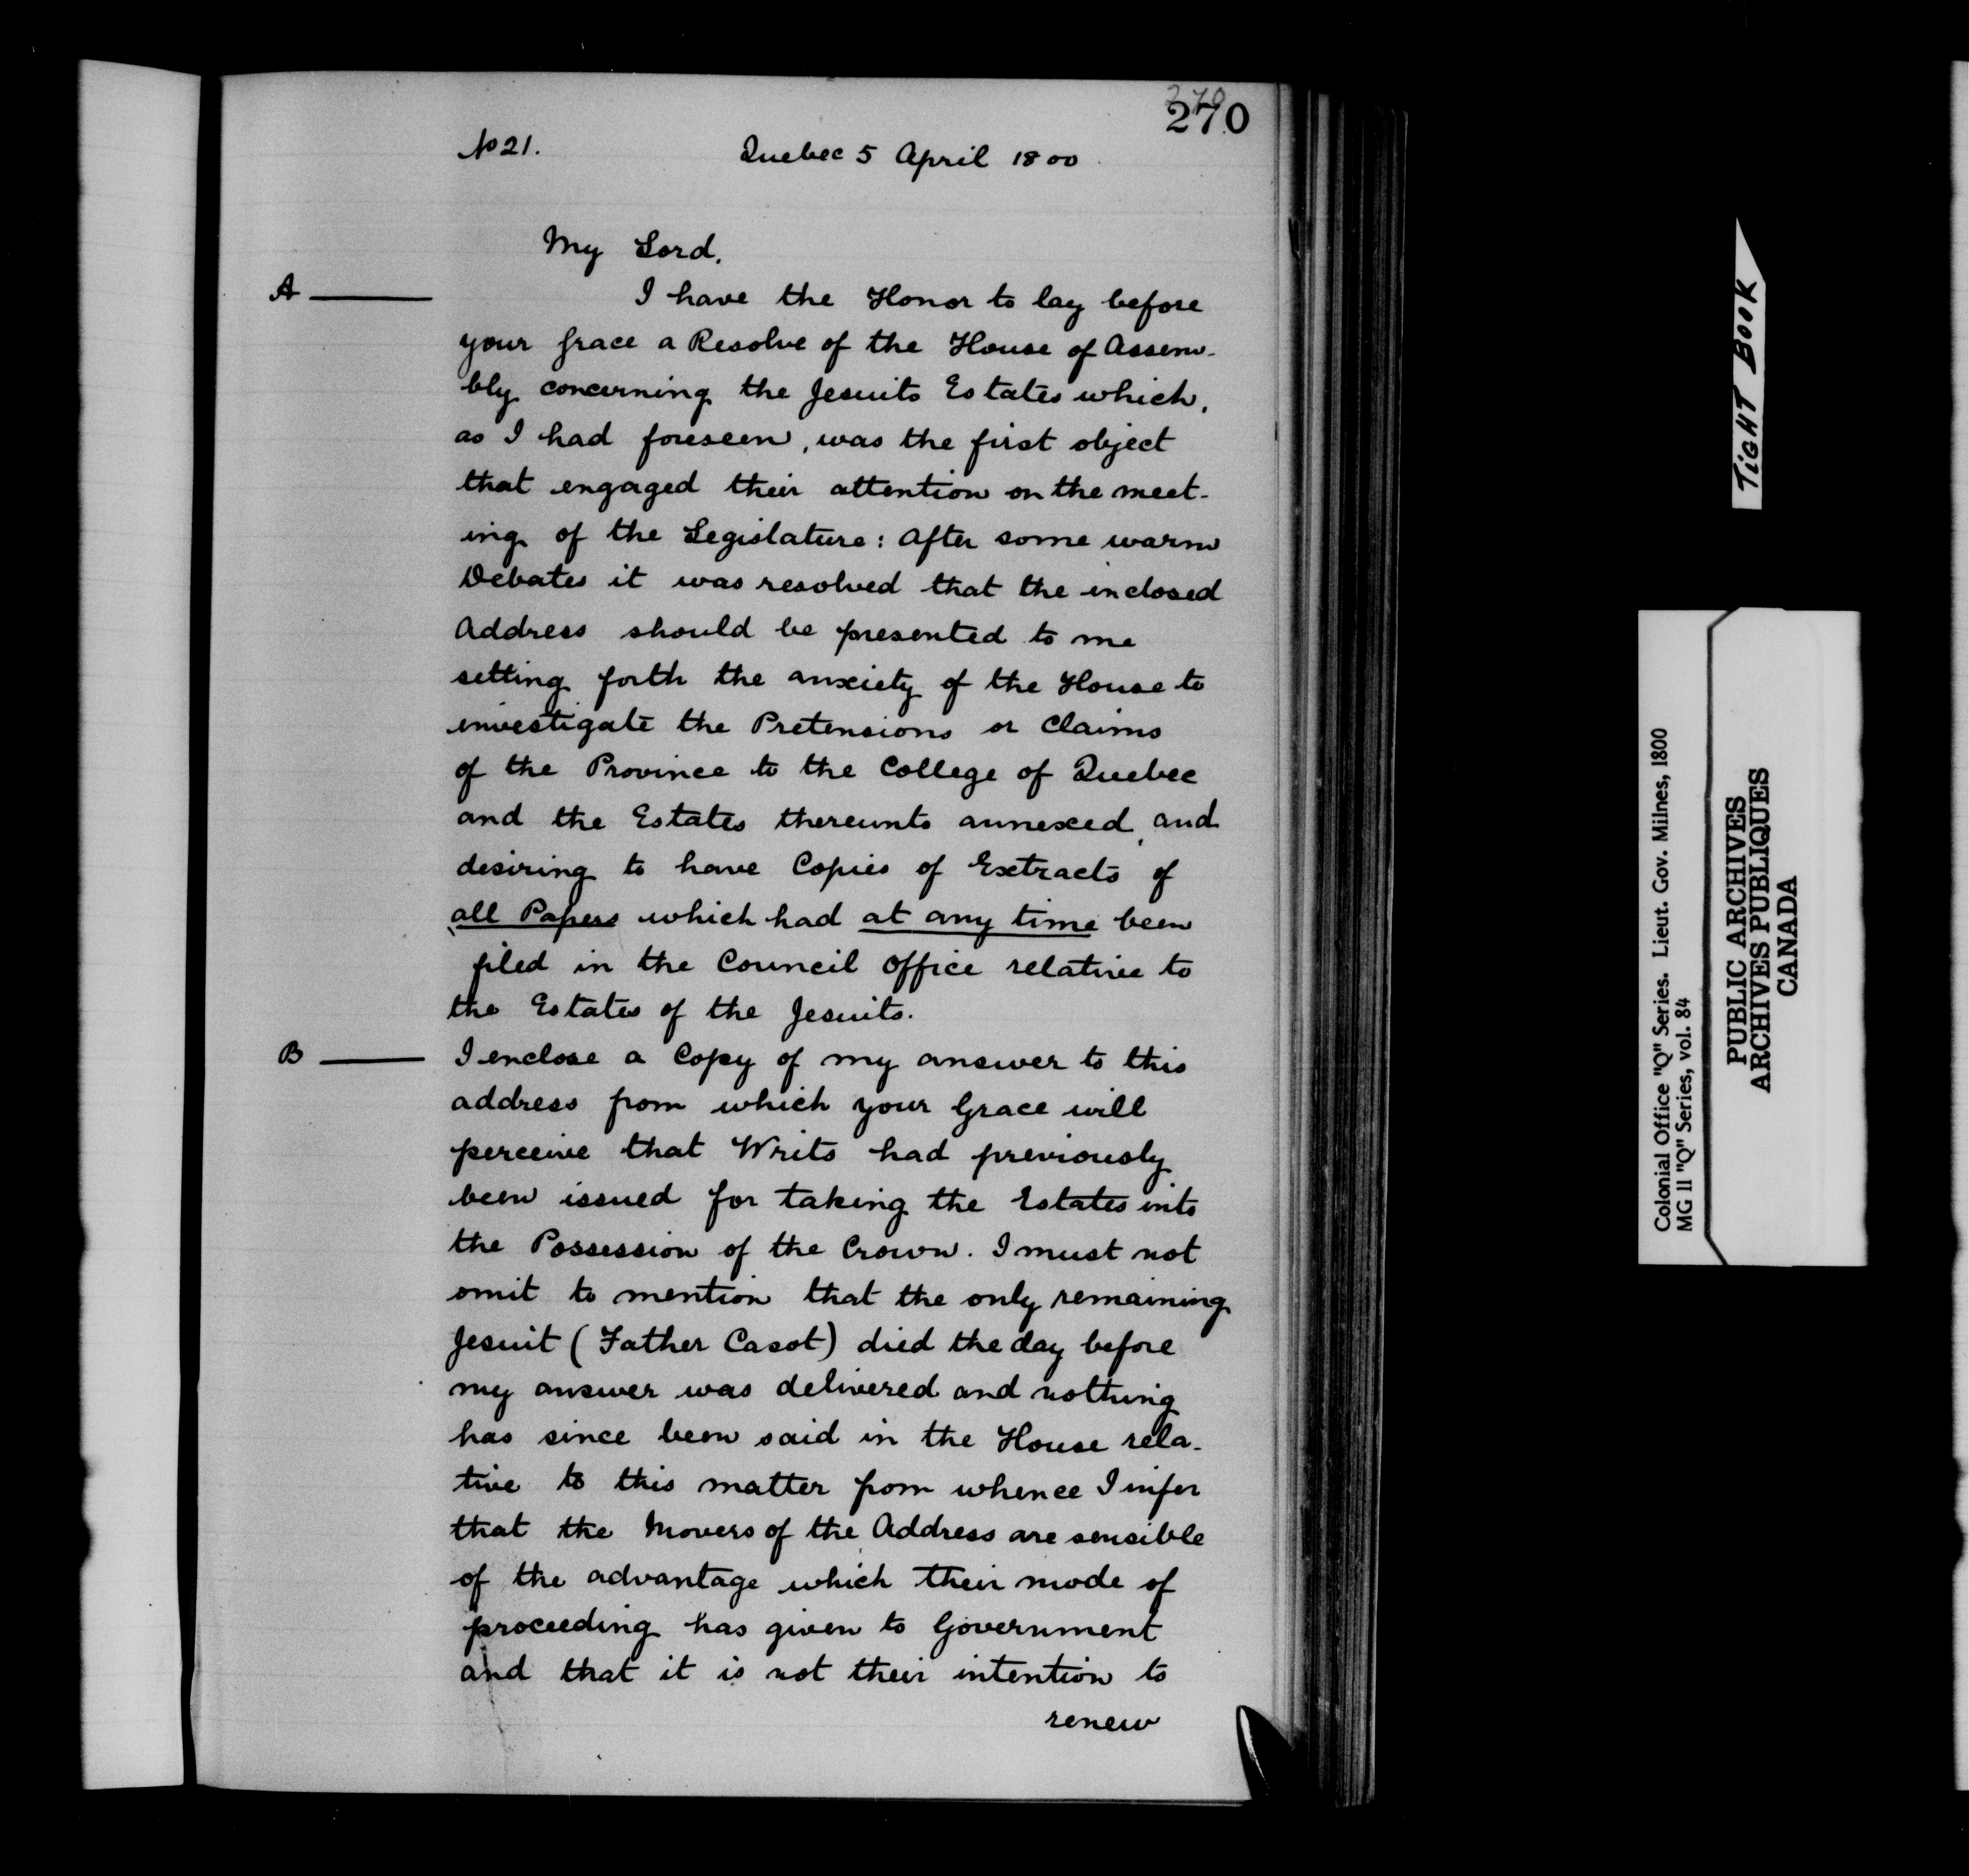 270
270
No 21.
Quebec 5 April 1800
My Lord.
A
I have the Honor to lay before
your Grace a Resolve of the House of Assem-
bly concerning the Jesuits Estates which,
as I had foreseen, was the first object
that engaged their attention on the meet-
ing of the Legislature: After some warm
Debates it was resolved that the inclosed
Address should be presented to me
setting forth the anxiety of the House to
investigate the Pretensions or Claims
of the Province to the College of Quebec
and the Estates thereunto annexed, and
desiring to have Copies of Extracts of
all Papers which had at any time been
filed in the Council Office relative to
the Estates of the Jesuits.
B
I enclose a Copy of my answer to this
address from which your Grace will
perceive that Writs had previously
been issued for taking the Estates into
the Possession of the Crown. I must not
omit to mention that the only remaining
Jesuit (Father Casot) died the day before
my answer was delivered and nothing
has since been said in the House rela-
tive to this matter from whence I infer
that the Movers of the Address are sensible
of the advantage which their mode of
proceeding has given to Government
and that it is not their intention to
renew
TIGHT BOOK
Colonial Office "Q" Series. Lieut. Gov. Milnes, 1800
MG 11 "Q" Series, vol. 84
PUBLIC ARCHIVES
ARCHIVES PUBLIQUES
CANADA